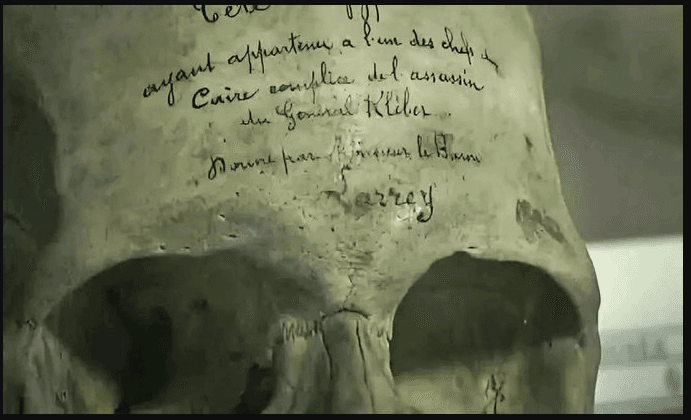 Tete
ayant appartenu a l'un des chefs
Caire complice de l'assassin
du Général Kléber.
Donné par Monsieur le Baron
Larrey